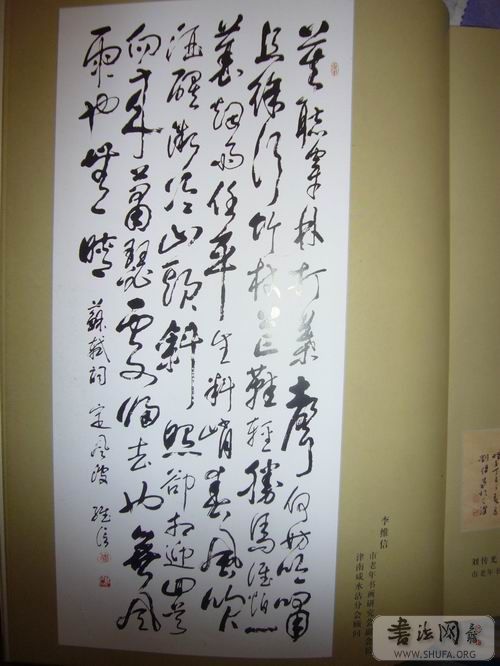 莫聽穿林打葉聲何妨吟嘯
且徐行竹杖芒鞋輕勝馬誰怕一
蓑烟雨任平生料峭春風吹
酒醒微冷山頭斜照卻相迎回首
向來蕭瑟處歸去也無風
雨也無晴
蘇軾詞 定風波 維信
李维信
市老年书画研究会副会
津南咸水沽分会顾问
刘传
市老年书
書法网
WWW.SHUFA.ORG